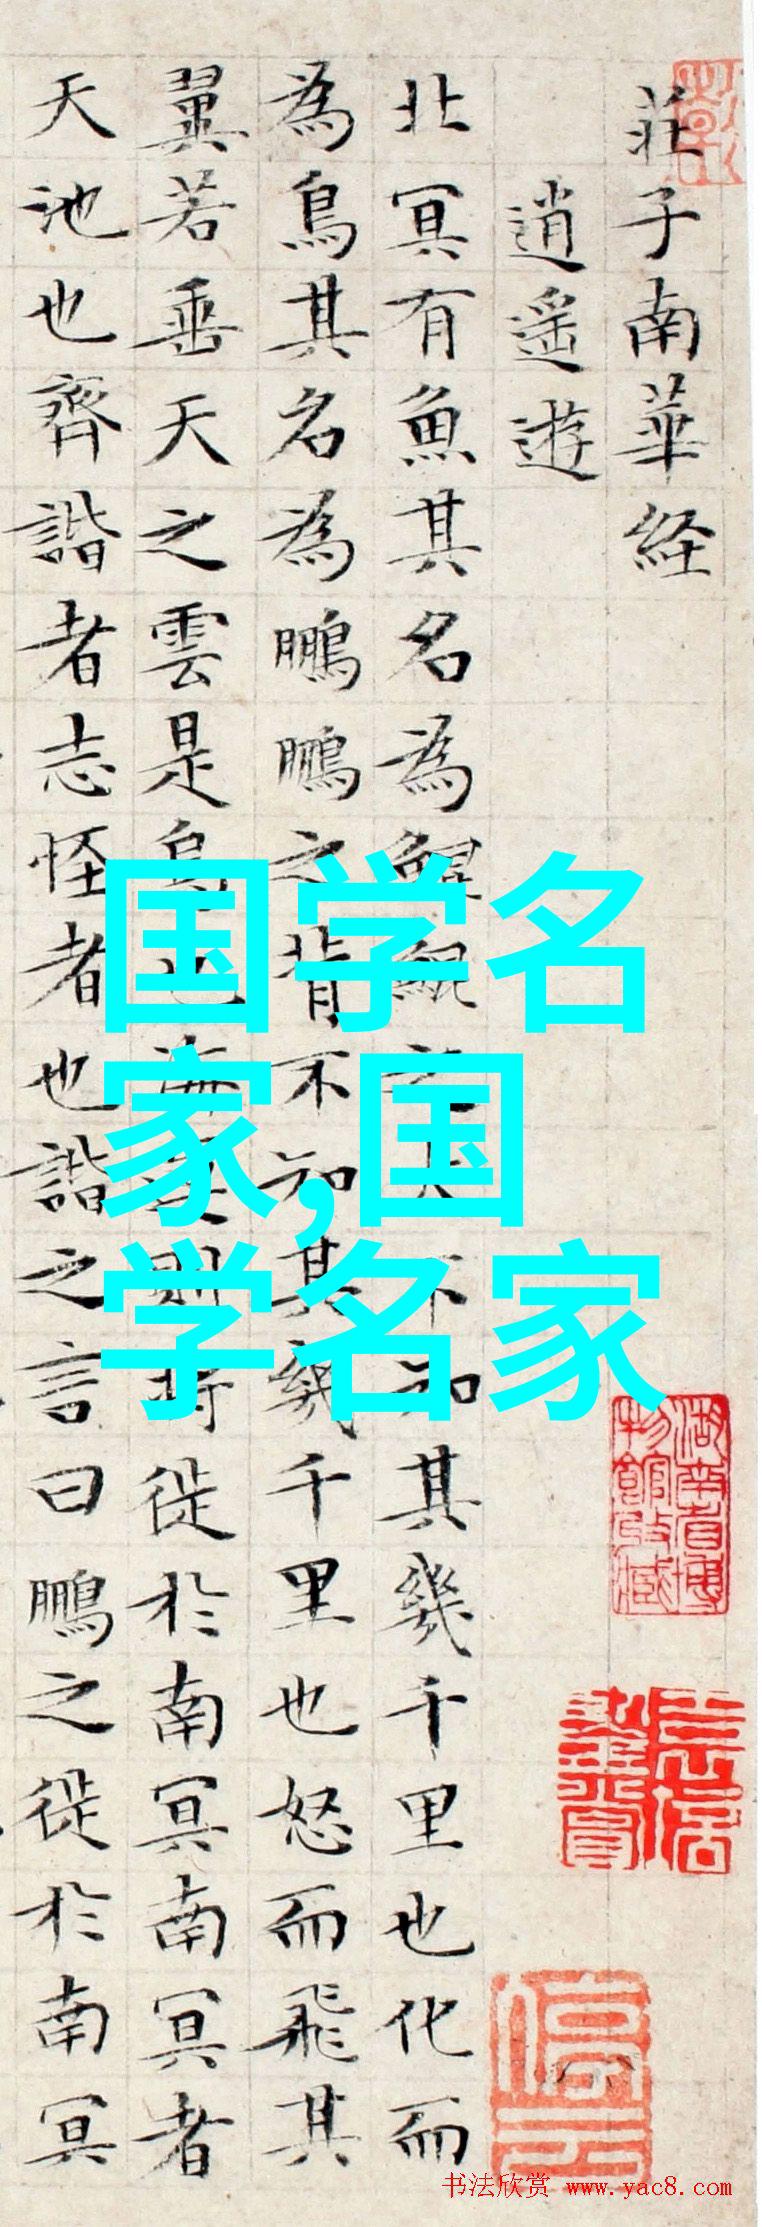 莊子南華経
逍遥遊
北冥有魚其名為鯤鯤之大不知其幾千里也化而
為鳥其名為鵬鵬之背不知其幾千里也怒而飛其
翼若垂天之雲是鳥也海運則將徙於南冥南冥者
天池也齊諧者志怪者也諧之言曰鵬之徙於南冥
国学名
家,国
学名家
湖南省博
物館收藏
书法欣赏 www.yac8.com